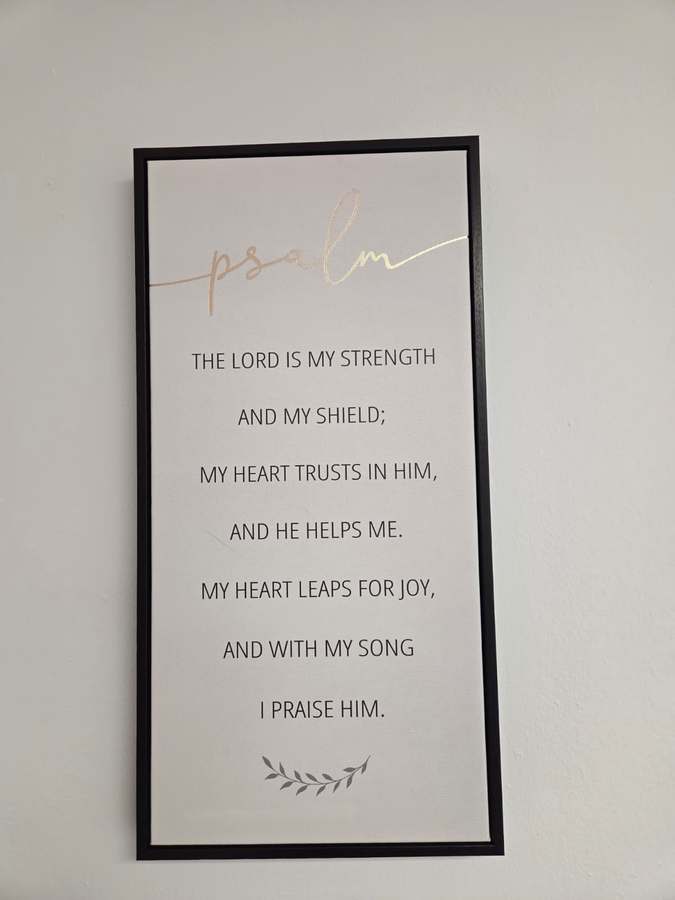 psalm
THE LORD IS MY STRENGTH
AND MY SHIELD;
MY HEART TRUSTS IN HIM,
AND HE HELPS ME.
MY HEART LEAPS FOR JOY,
AND WITH MY SONG
I PRAISE HIM.